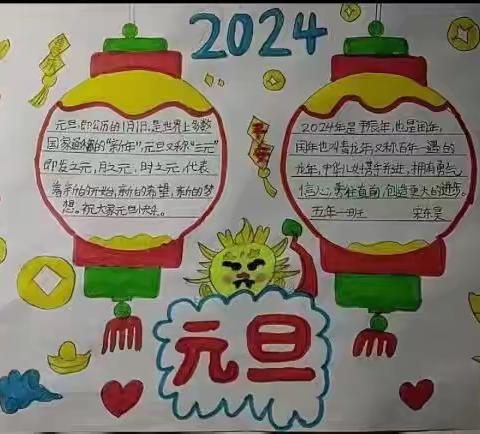 2024
元旦,即公历的1月1日,是世界上多数
国家通称的“新年”,元旦又称“三元”
即岁之元,月之元,时之元,代表
着新的开始,新的希望,新的梦
想。祝大家元旦快乐。
2024年是甲辰年,也是闰年,
闰年也叫青龙年,又称百年一遇的
龙年,中华儿女昂首奋进,拥有勇气
信心,勇往直前,创造更大的进步。
五年一班 宋东昊
元旦